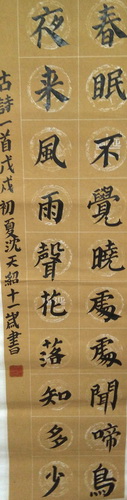 春眠不覺曉處處聞啼鳥
夜来風雨聲花落知多少
古詩一首戊戌初夏沈天紹十一歲書